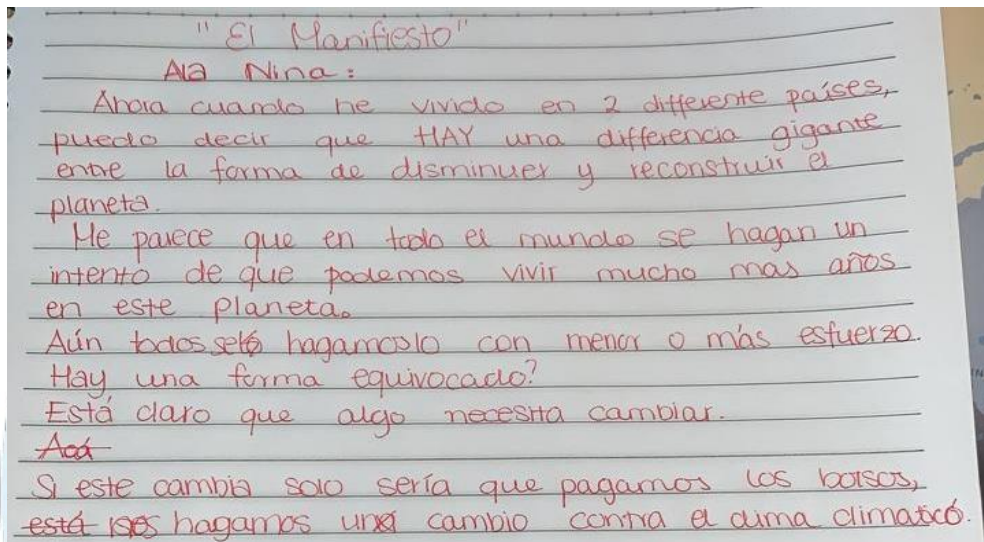 "El Manifiesto"
Ala Nina:
Ahora cuando he vivido en 2 differente países,
puedo decir que HAY una differencia gigante
entre la forma de disminuer y reconstruir el
planeta.
Me parece que en todo el mundo se hagan un
intento de que podemos vivir mucho mas años
en este planeta.
Aún todos hagamoslo con menor o más esfuerzo.
Hay una forma equivocado?
Está claro que algo necesita cambiar.
Acá
Si este cambia solo sería que pagamos los bolsos,
está hagamos una cambio contra el clima climaticó.